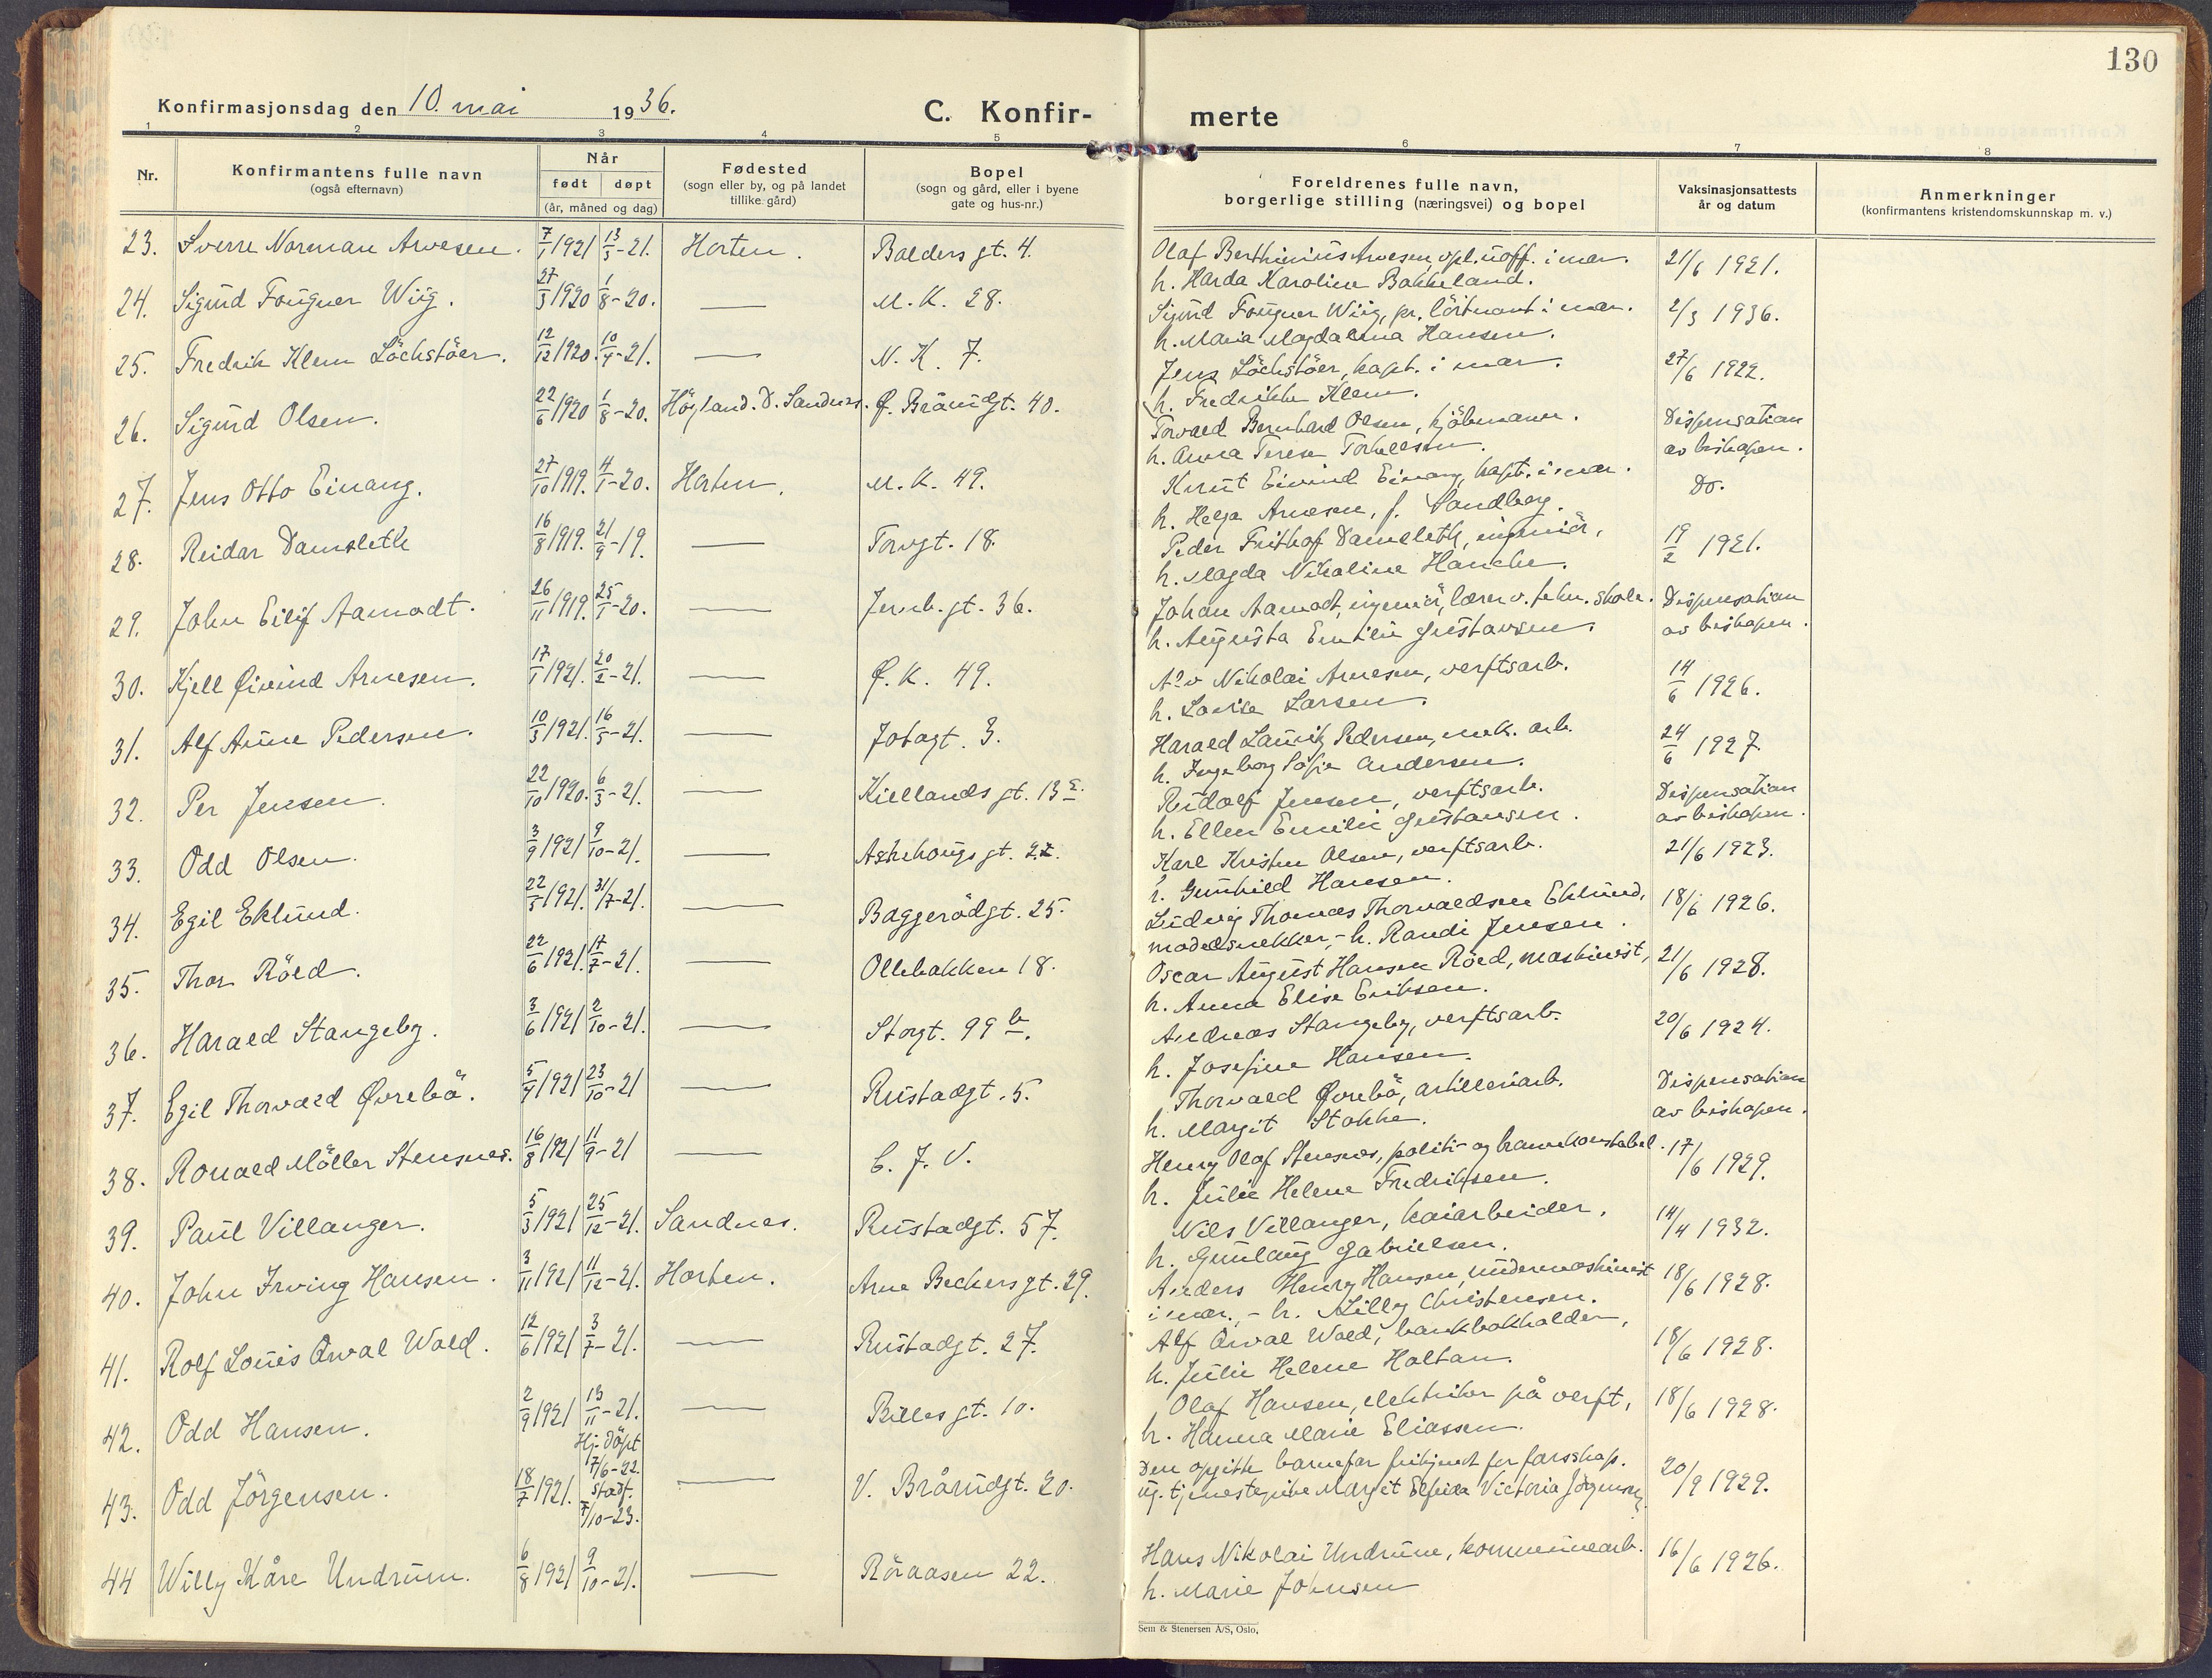 130
Konfirmasjonsdag den 10. mai 1936.
C. Konfir-
merte
1 2 3 4 5 6 7 8
Nr.
Konfirmantens fulle navn
(også efternavn)
Når
født døpt
(år, måned og dag)
Fødested
(sogn eller by, og på landet
tillike gård)
Bopel
(sogn og gård, eller i byene
gate og hus-nr.)
Foreldrenes fulle navn,
borgerlige stilling (næringsvei) og bopel
Vaksinasjonsattests
år og datum
Anmerkninger
(konfirmantens kristendomskunnskap m. v.)
23. Sverre Norman Arvesen. 7/1 1921 13/3-21. Horten. Balders gt. 4. Olaf Berthinius Arvesen, opl. uoff. i mar. 21/6 1921.
h. Harda Karoline Bakkeland.
24. Sigurd Fougner Wiig. 27/3 1920 1/8-20. — M. K. 28. Sigurd Fougner Wiig, pr. löitnant i mar. 2/3 1936.
h. Maria Magdalena Hansen.
25. Fredrik Klem Löchstöer. 12/12 1920. 10/4-21. — N. K. 7. Jens Löchstöer, kapt. i mar. 27/6 1922.
h. Fredrikke Klem.
26. Sigurd Olsen. 22/6 1920 1/8-20. Höyland. D. Sandnes. Ø. Bråudgt. 40. Torvald Bernhard Olsen, kjöbmann. Dispensation
h. Anna Terese Torkelsen. av biskopen.
27. Jens Otto Einang. 27/10 1919. 4/1-20. Horten. M. K. 49. Knut Eivind Einang, kapt. i mar. Do.
h. Helga Arnesen, f. Sandberg.
28. Reidar Damsleth 16/8 1919. 21/9-19. — Torvgt. 18. Peder Frithof Damsleth, ingeniör, 19/2 1921.
h. Magda Nikoline Hanche.
29. John Eilif Aamodt. 26/11 1919. 25/1-20. — Jernb. gt. 36. Johan Aamodt, ingeniör, lærer v. tekn. skole. Dispensation
h. Augusta Emilie Gustavsen. av biskopen.
30. Kjell Øivind Arnesen. 17/1 1921. 20/2-21. — Ø. K. 49. Nikolai Arnesen, verftsarb. 14/6 1926.
h. Lovise Larsen.
31. Alf Arne Pedersen. 10/3 1921. 16/5-21. — Jobagt. 3. Harald Lauritz Pedersen, mek. arb. 24/6 1927.
h. Ingeborg Sofie Andersen.
32. Per Jensen. 22/10 1920. 6/3-21. — Kiellands gt. 13 Rudolf Jensen, verftsarb. Dispensation
h. Ellen Emilie Gustavsen. av biskopen.
33. Odd Olsen. 3/9 1921 9/10-21. — Askehougs gt. 22. Karl Kristen Olsen, verftsarb. 21/6 1923.
h. Gunhild Hansen.
34. Egil Eklund. 22/5 1921. 31/7-21. — Baggerödgt. 25. Ludvig Thomas Thorvaldsen Eklund, 18/6 1926.
modelsnekker, - h. Randi Jensen.
35. Thor Röed. 22/6 1921. 17/7-21. — Ollebakken 18. Oscar August Hansen Röed, maskinist, 21/6 1928.
h. Anna Elise Eriksen.
36. Harald Stangeby. 3/6 1921 2/10-21. — Storgt. 99 b. Andreas Stangeby, verftsarb. 20/6 1924.
h. Josefine Hansen.
37. Egil Thorvald Øvrebö. 5/4 1921 23/10-21 — Rustadgt. 5. Thorvald Øvrebö, artilleriarb. Dispensation
h. Margit Stokke. av biskopen.
38. Ronald Möller Stensnes. 16/8 1921 11/9-21 — C. J. V. Henry Olaf Stensnes, politi- og brannkonstabel. 17/6 1929.
h. Julie Helene Fredriksen.
39. Paul Villanger. 5/3 1921 25/12-21. Sandnes. Rustadgt. 57. Nils Villanger, kaiarbeider, 14/4 1932.
h. Gunlaug Gabrielsen.
40. John Irving Hansen. 3/11 1921 11/12-21. Horten. Arne Beckers gt. 29. Anders Henry Hansen, undermaskinist 18/6 1928.
i mar., - h. Lilly Christensen.
41. Rolf Louis Orval Wold. 12/6 1921 3/7-21. — Rustadgt. 27. Alf Orval Wold, bankbokholder, 18/6 1928.
h. Julie Helene Holtan.
42. Odd Hansen. 2/9 1921 13/11-21. — Billes gt. 10. Olaf Hansen, elektriker på verft, 18/6 1928.
h. Hanna Marie Eliassen.
43. Odd Jörgensen. 18/7 1921. Hj. döpt 17/6-22. stadf. 7/10-23. — V. Bråudgt. 20. Den opgitte barnefar frikjent for farsskap. 20/9 1929.
ug. tjenestepike Margit Elfrida Victoria Jörgensen
44 Willy Kåre Undrum. 6/8 1921 9/10-21. — Röraasen 22. Hans Nikolai Undrum, kommunearb. 16/6 1926.
h. Marie Johnsen
Sem & Stenersen A/S, Oslo.